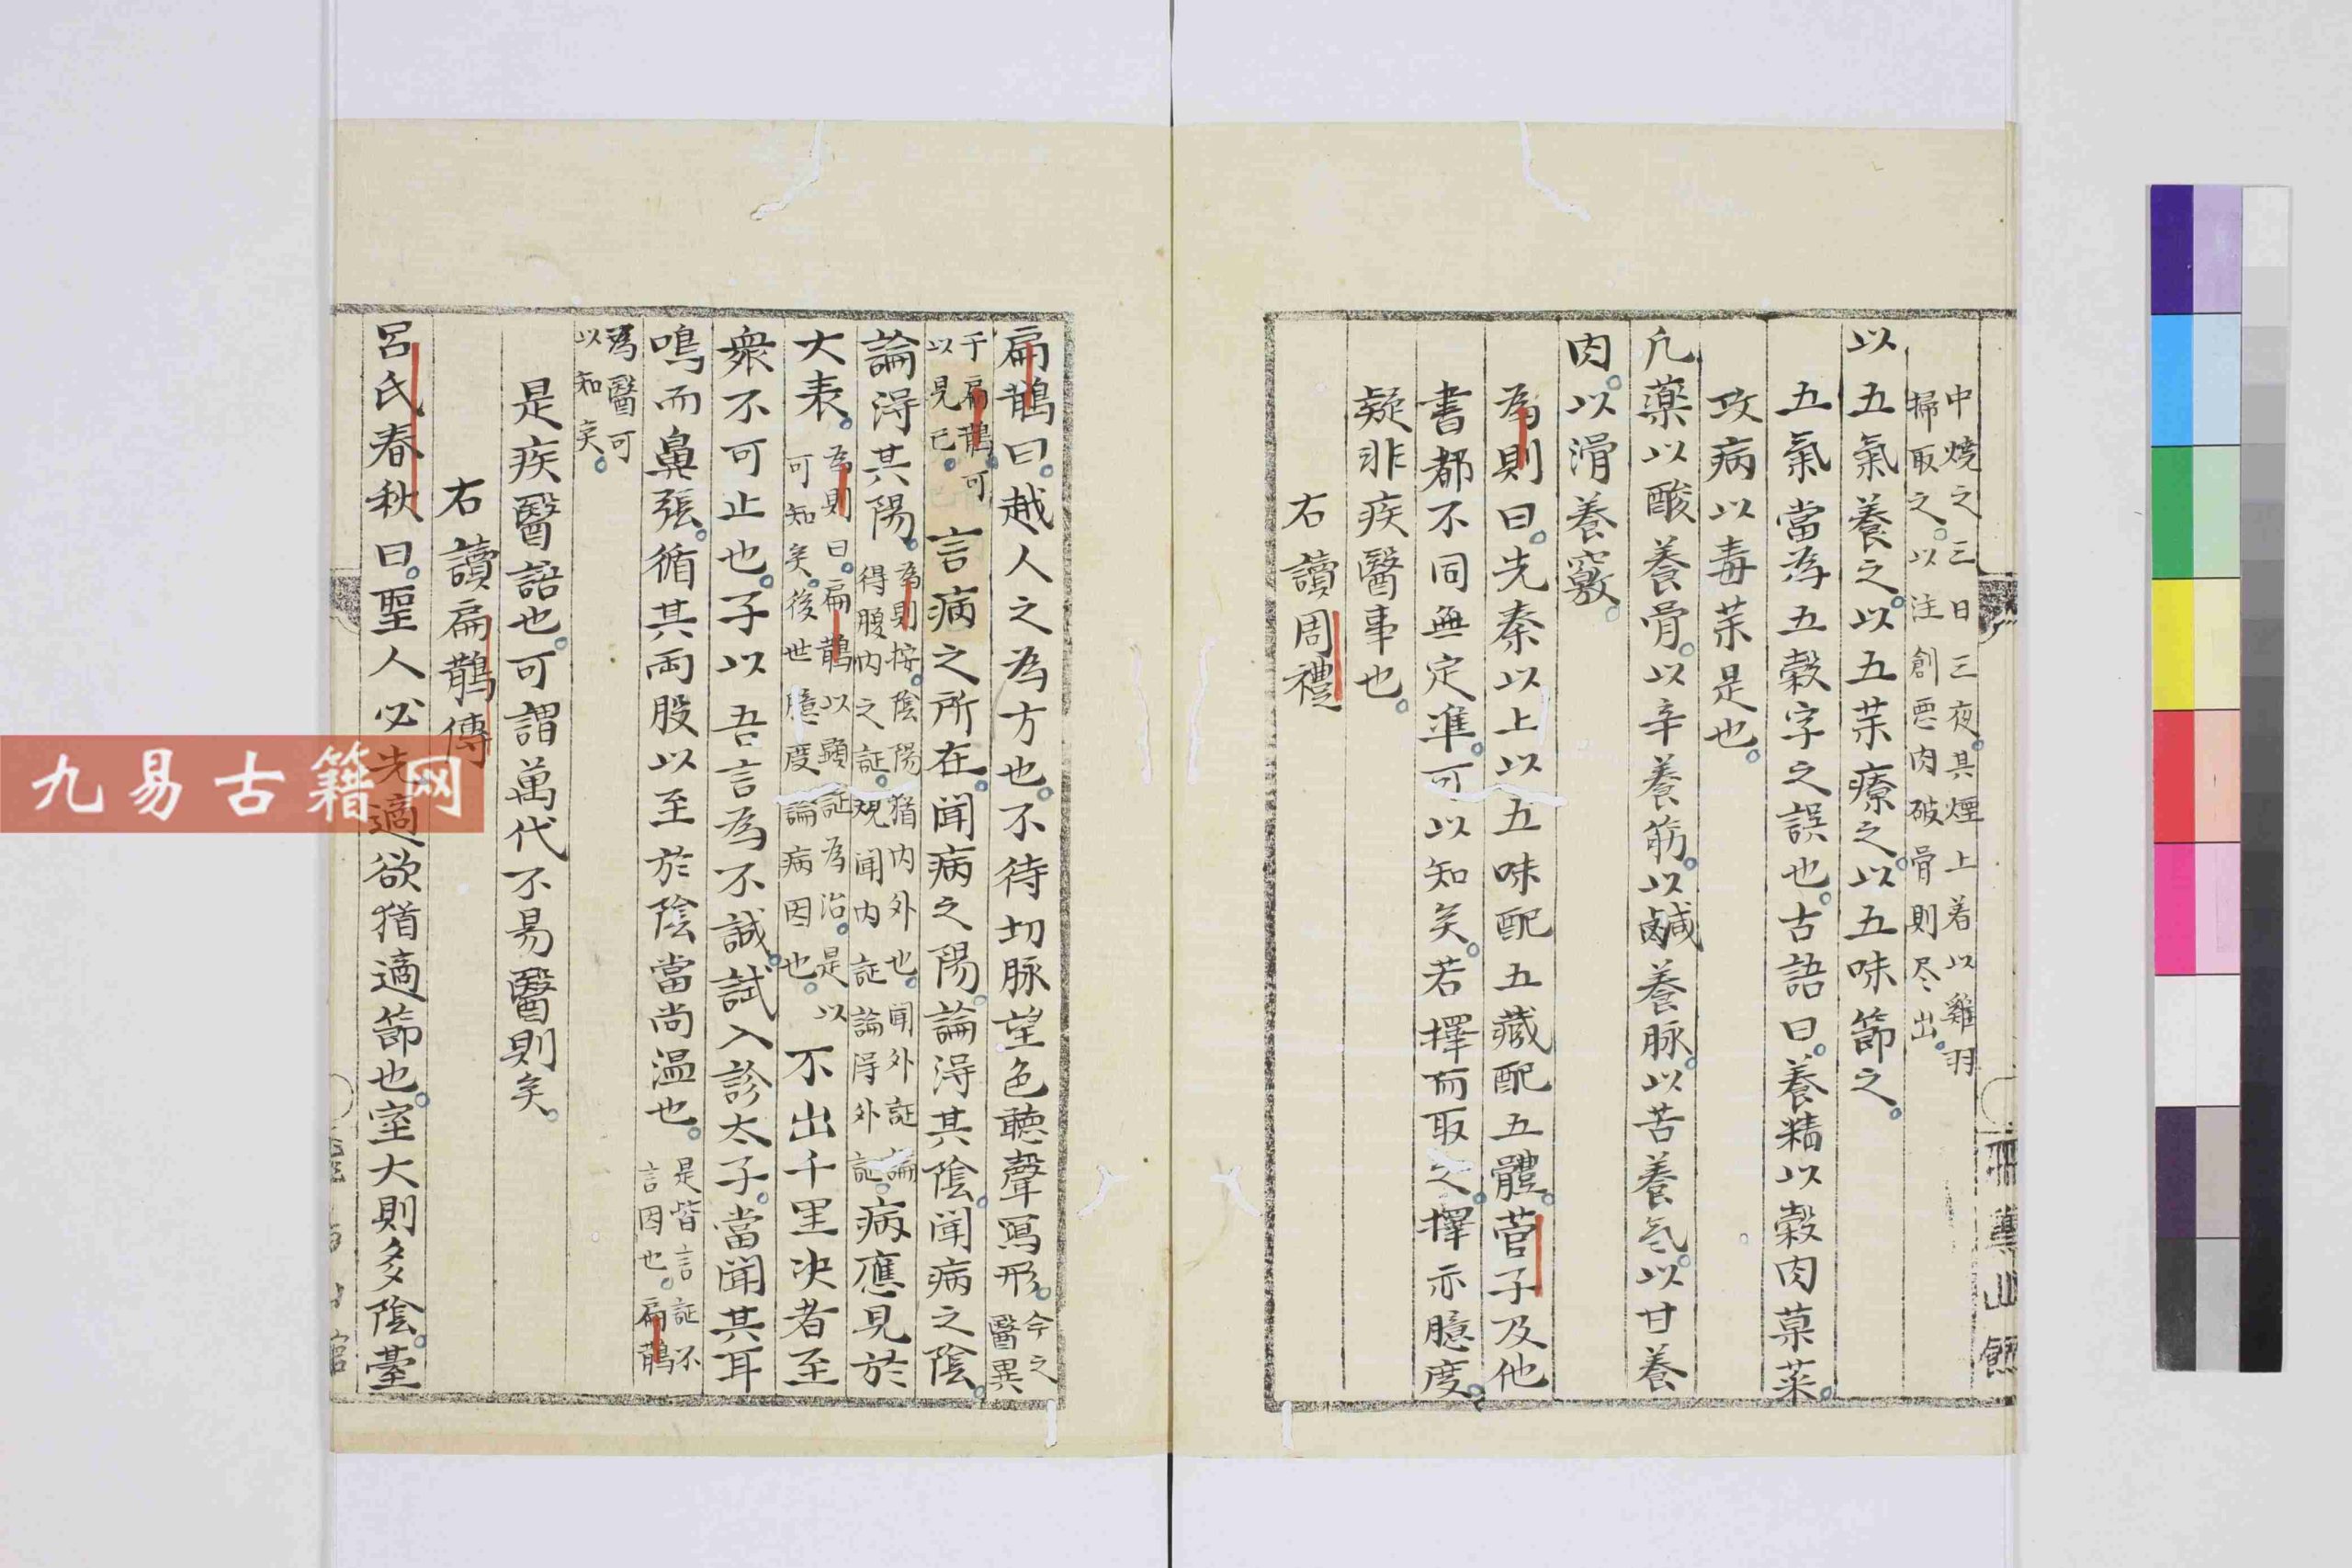 中燒之三日三夜其煙上着以雞羽
掃取之以注創惡肉破骨則尽出
以五氣養之以五藥療之以五味節之
五氣當為五穀字之誤也古語曰養精以穀肉菓菜
攻病以毒藥是也
凡藥以酸養骨以辛養筋以鹹養脉以苦養気以甘養
肉以滑養竅
為則曰先秦以上以五味配五藏配五體菅子及他
書都不同無定準可以知矣若擇而取之擇亦臆度
疑非疾醫事也
右讀周禮
扁鵲曰越人之為方也不待切脉望色聴聲寫形
今之
醫異
于扁鵲可
以見已
言病之所在聞病之陽論得其陰聞病之陰
論得其陽
為則按陰陽猶内外也聞外証論
得腹内之証観聞内証論得外証
病應見於
大表
為則曰扁鵲以顕証為治是以
可知矣後世臆度論病因也
不出千里决者至
衆不可止也子以吾言為不誠試入診太子當聞其耳
鳴而鼻張循其両股以至於陰當尚温也
是皆言証不
言因也扁鵲
為醫可
以知矣
是疾醫語也可謂萬代不易醫則矣
右讀扁鵲傳
呂氏春秋曰聖人必先適欲猶適節也室大則多陰臺
九易古籍网